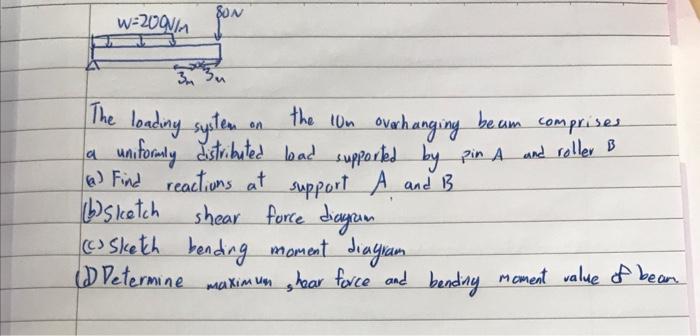 80N
W=200N/m
3m 3m
The loading system on the 10m overhanging beam comprises
a uniformly distributed load supported by pin A and roller B
(a) Find reactions at support A and B
(b) Sketch shear force diagram
(c) Sketh bending moment diagram
(D) Determine maximum shear force and bending moment value of beam